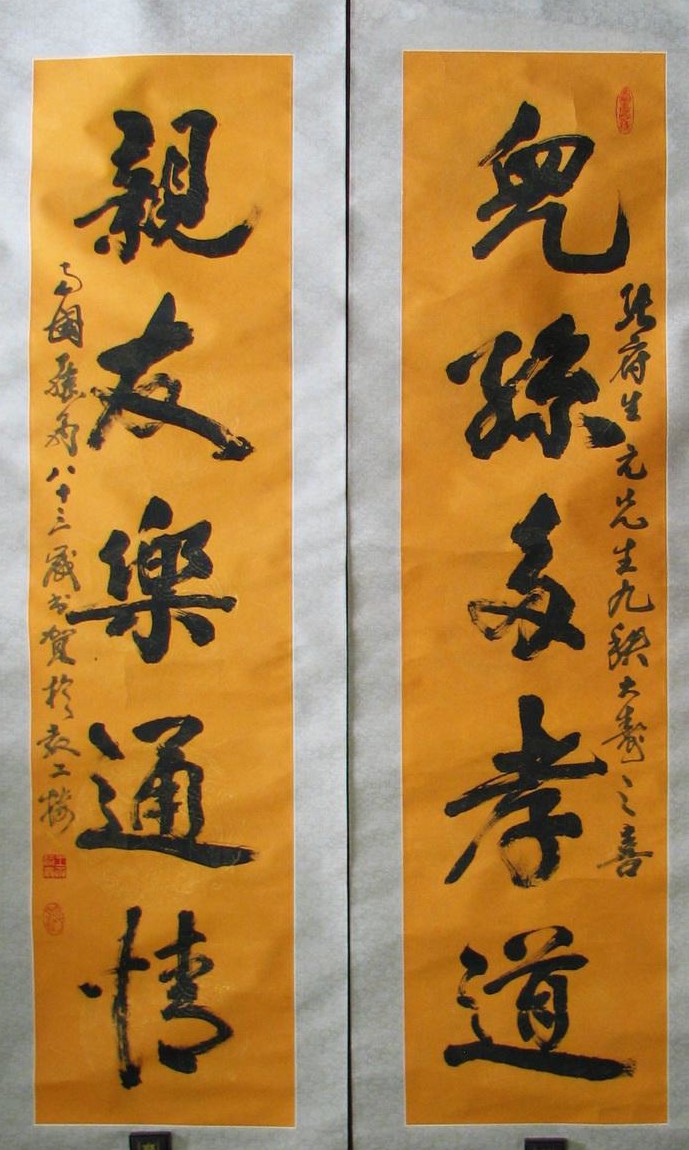 兒孫多孝道
張府生元先生九秩大壽之喜
親友樂通情
國 八十三歲書賀於教工樓